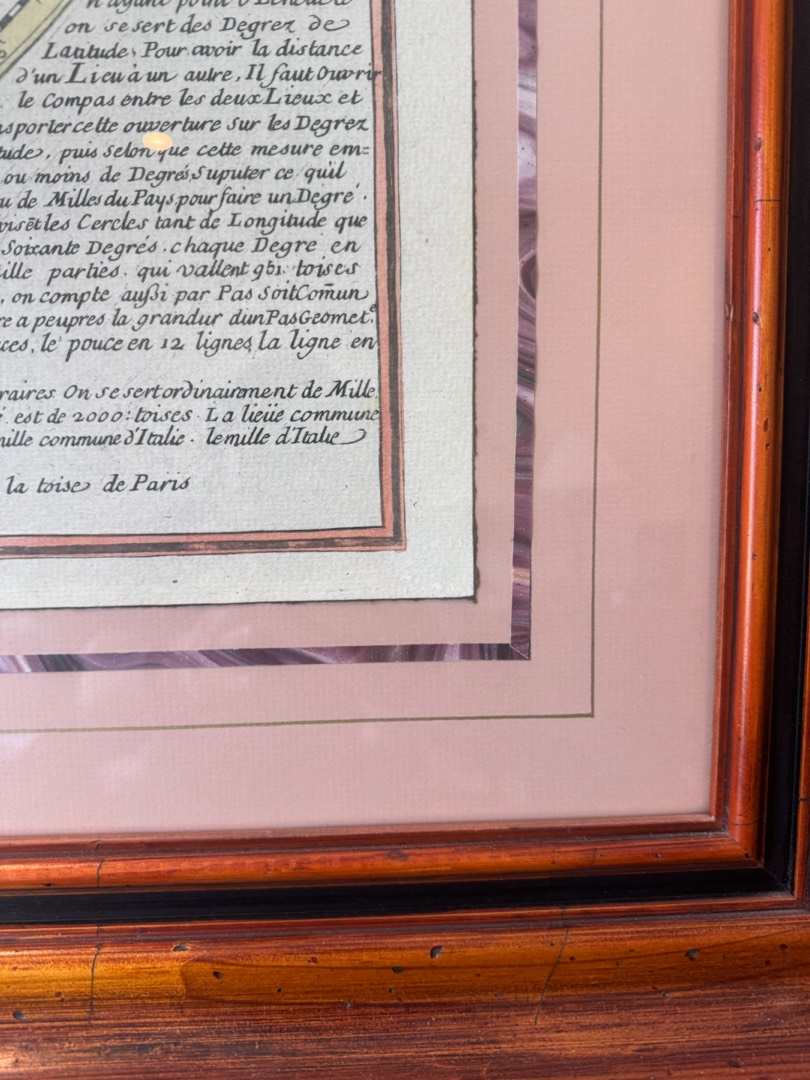 n'ayant point d'Echelle
on se sert des Degrez de
Latitude, Pour avoir la distance
d'un Lieu à un autre, Il faut Ouvrir
le Compas entre les deux Lieux et
nsporter cette ouverture sur les Degrez
tude, puis selon que cette mesure em=
ou moins de Degrés, Suputer ce quil
u de Milles du Pays pour faire un Degré.
visēt les Cercles tant de Longitude que
Soixante Degrés. chaque Degre en
ille parties. qui vallent 951. toises
, on compte außi par Pas soit Com̃un
re a peupres la grandur dun Pas Geomet.e
ces, le pouce en 12 lignes, la ligne en
raires On se sert ordinairement de Mille
est de 2000: toises. La lieüe commune
mille commune d'Italie. le mille d'Italie
la toise de Paris